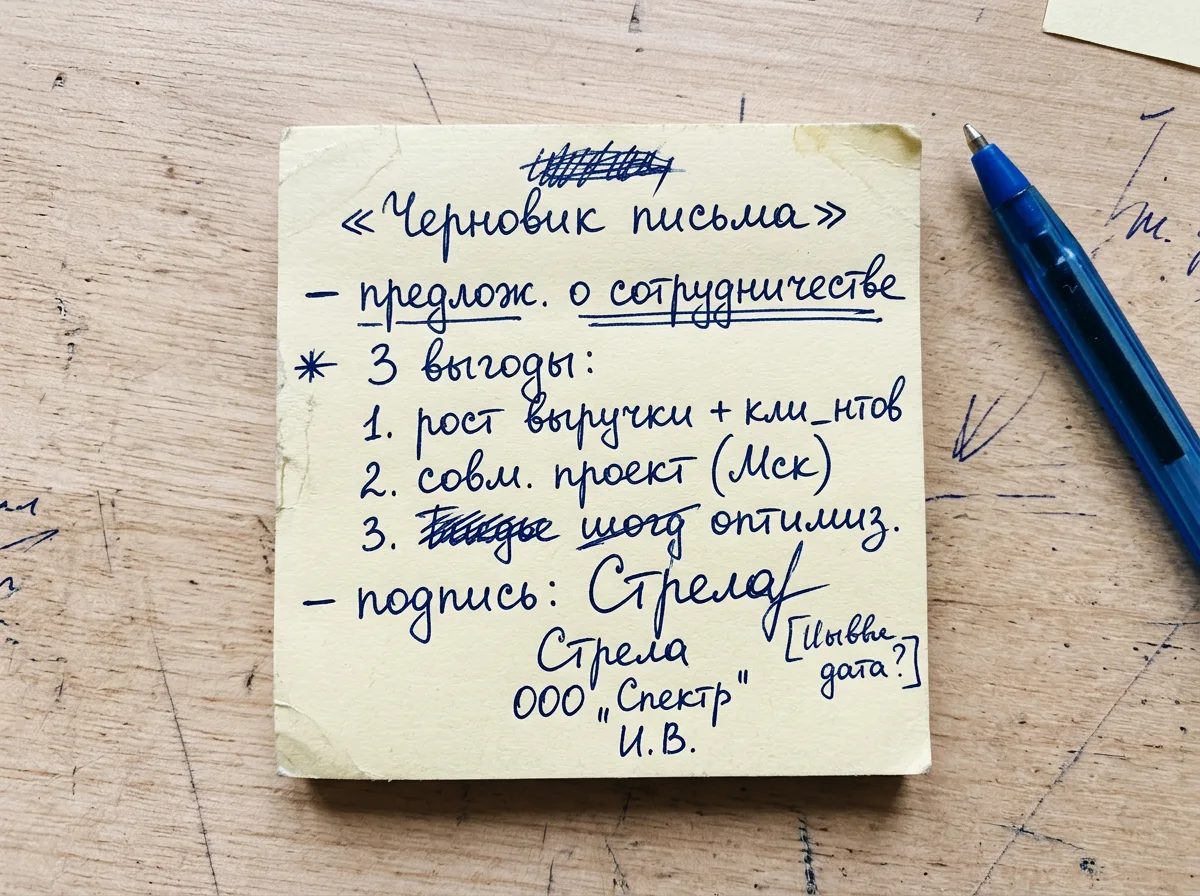 «Черновик письма»
– предлож. о сотрудничестве
* 3 выгоды:
1. рост выручки + кли_нтов
2. совм. проект (Мск)
3. оптимиз.
– подпись: Стрела
Стрела
[дата?]
ООО „Спектр"
И.В.